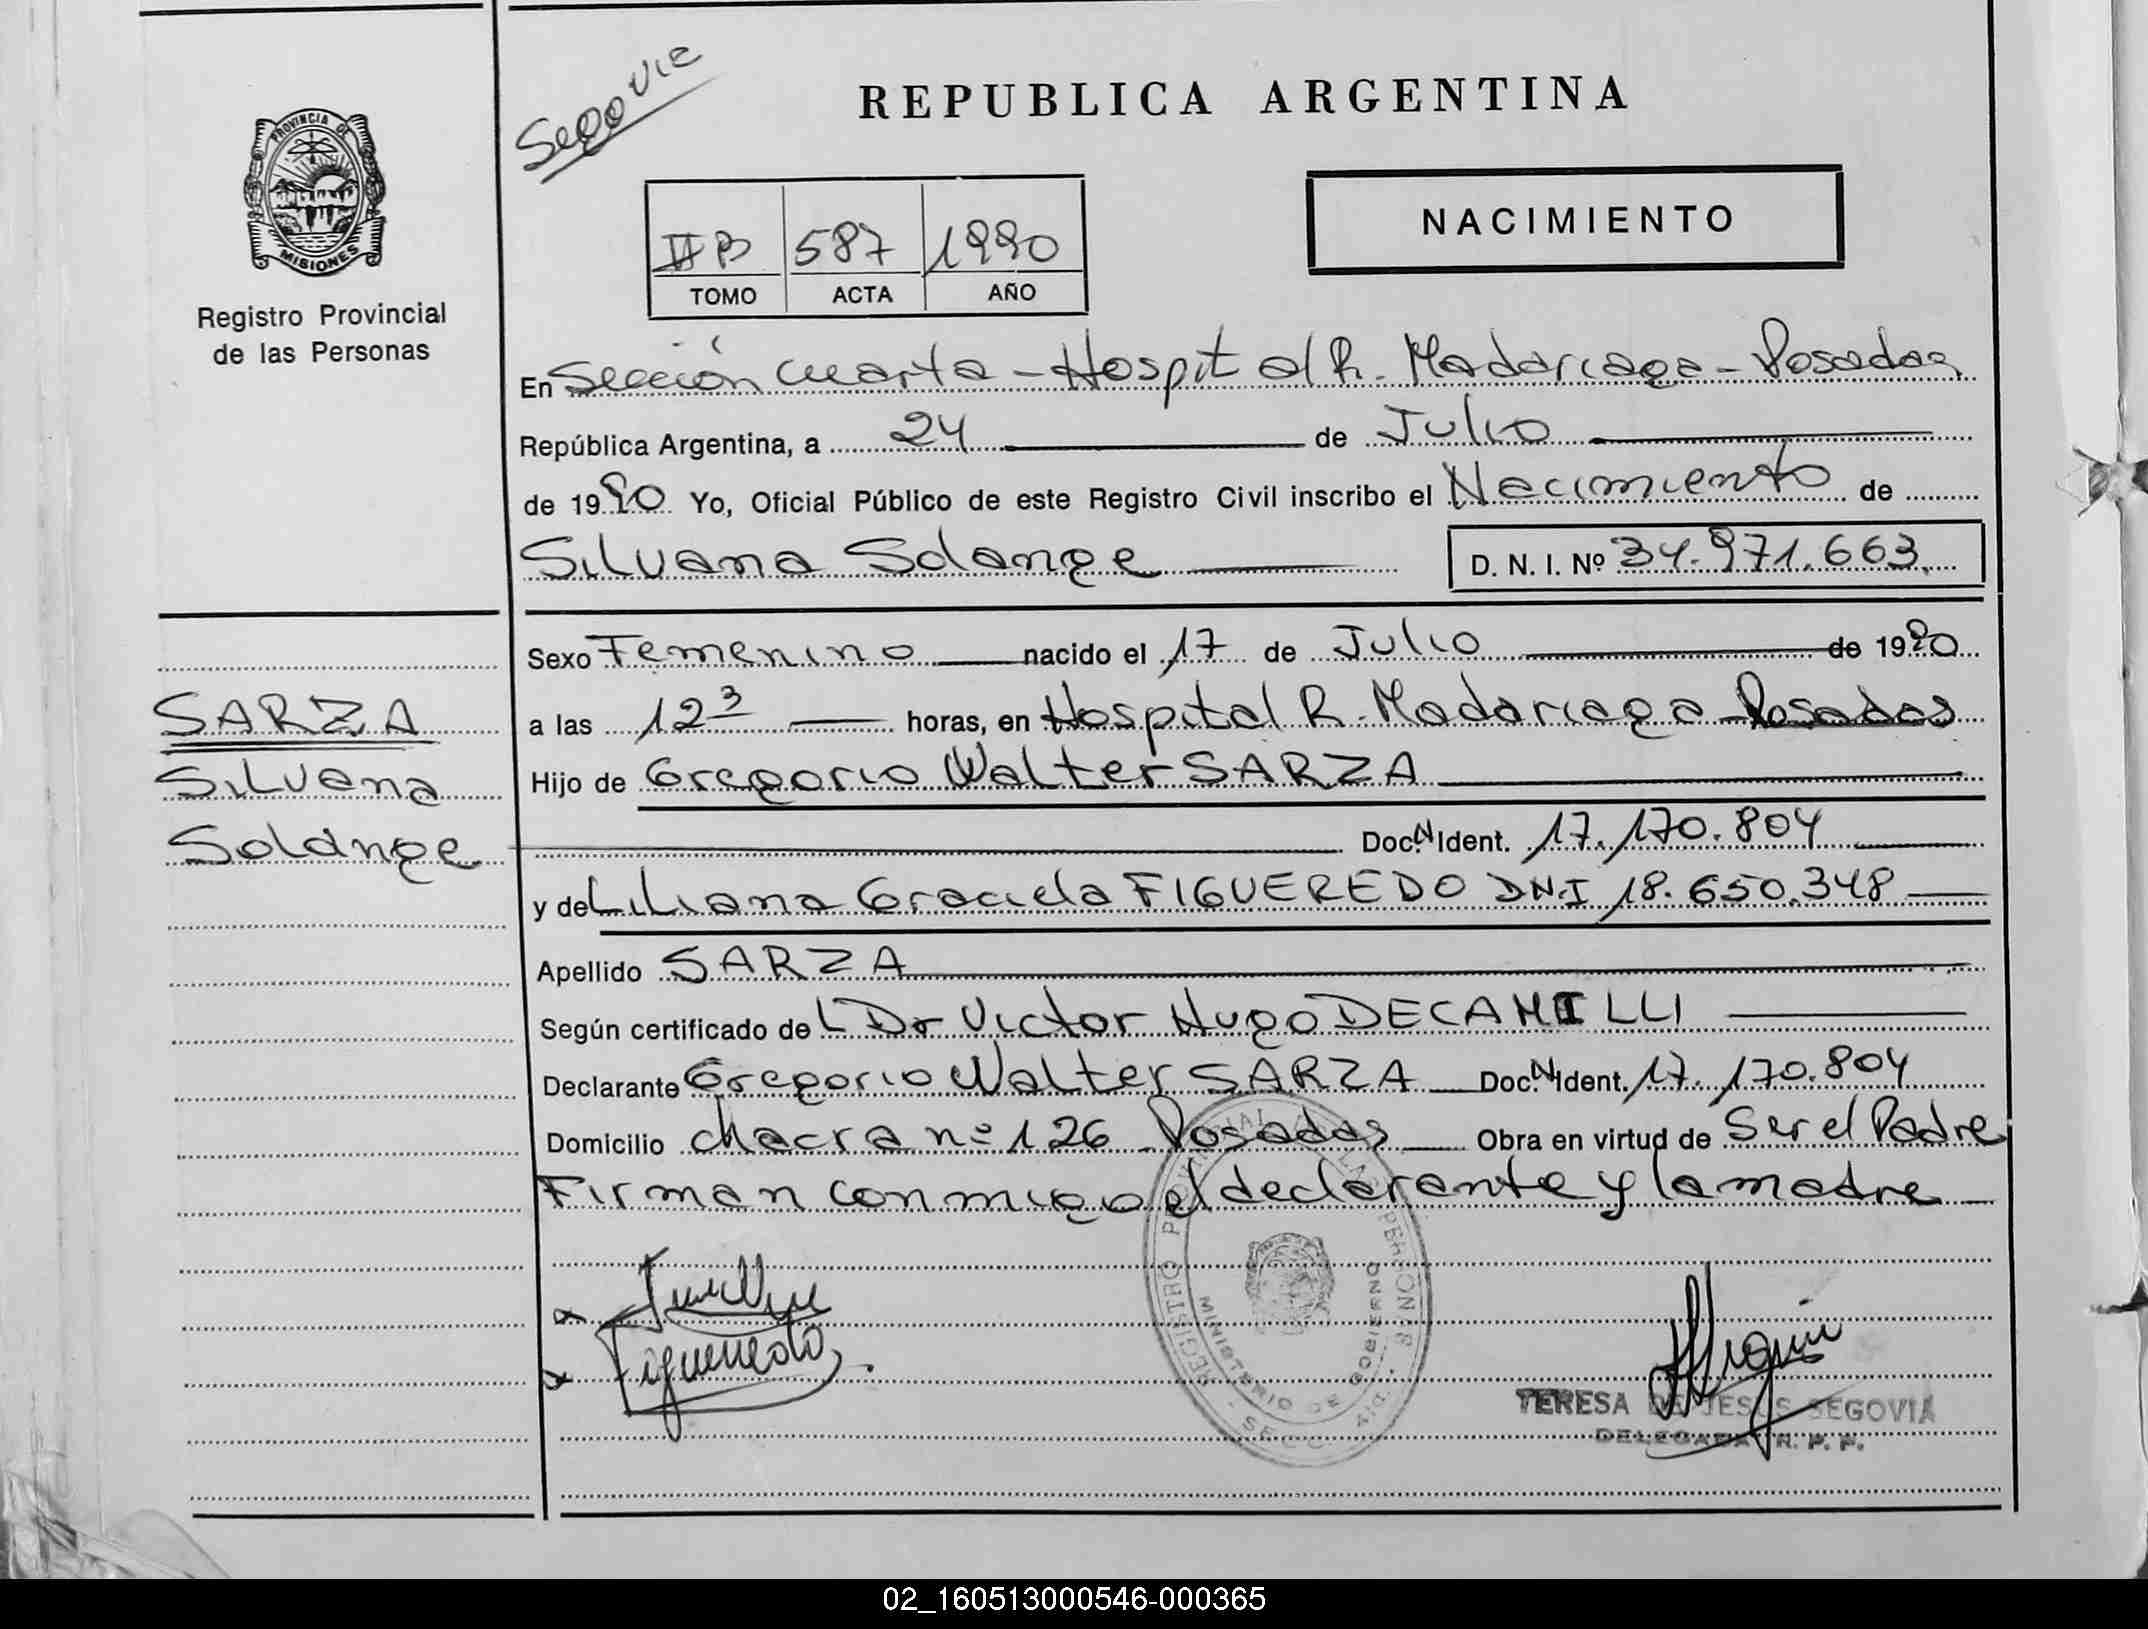 Segovie
REPUBLICA ARGENTINA
PROVINCIA DE
MISIONES
Registro Provincial
de las Personas
II B 587 1990
TOMO ACTA AÑO
NACIMIENTO
En Sección Cuarta - Hospital R. Madariaga - Posadas
República Argentina, a 24 de Julio
de 1990 Yo, Oficial Público de este Registro Civil inscribo el Nacimiento de
Silvana Solange D. N. I. Nº 34.971.663
Sexo Femenino nacido el 17 de Julio de 1990
a las 12³ horas, en Hospital R. Madariaga - Posadas
Hijo de Gregorio Walter SARZA
Doc. N Ident. 17.170.804
y de Liliana Graciela FIGUEREDO DN.I 18.650.348
Apellido SARZA
Según certificado de L Dr Victor Hugo DECAMILLI
Declarante Gregorio Walter SARZA Doc. N Ident. 17.170.804
Domicilio chacra nº 126 Posadas Obra en virtud de Ser el Padre
Firman conmigo el declarante y la madre
SARZA
Silvana
Solange
Figueredo
REGISTRO PROVINCIAL DE LAS PERSONAS
MINISTERIO DE GOBIERNO
TERESA DE JESUS SEGOVIA
DELEGADA R. P. P.
02_160513000546-000365